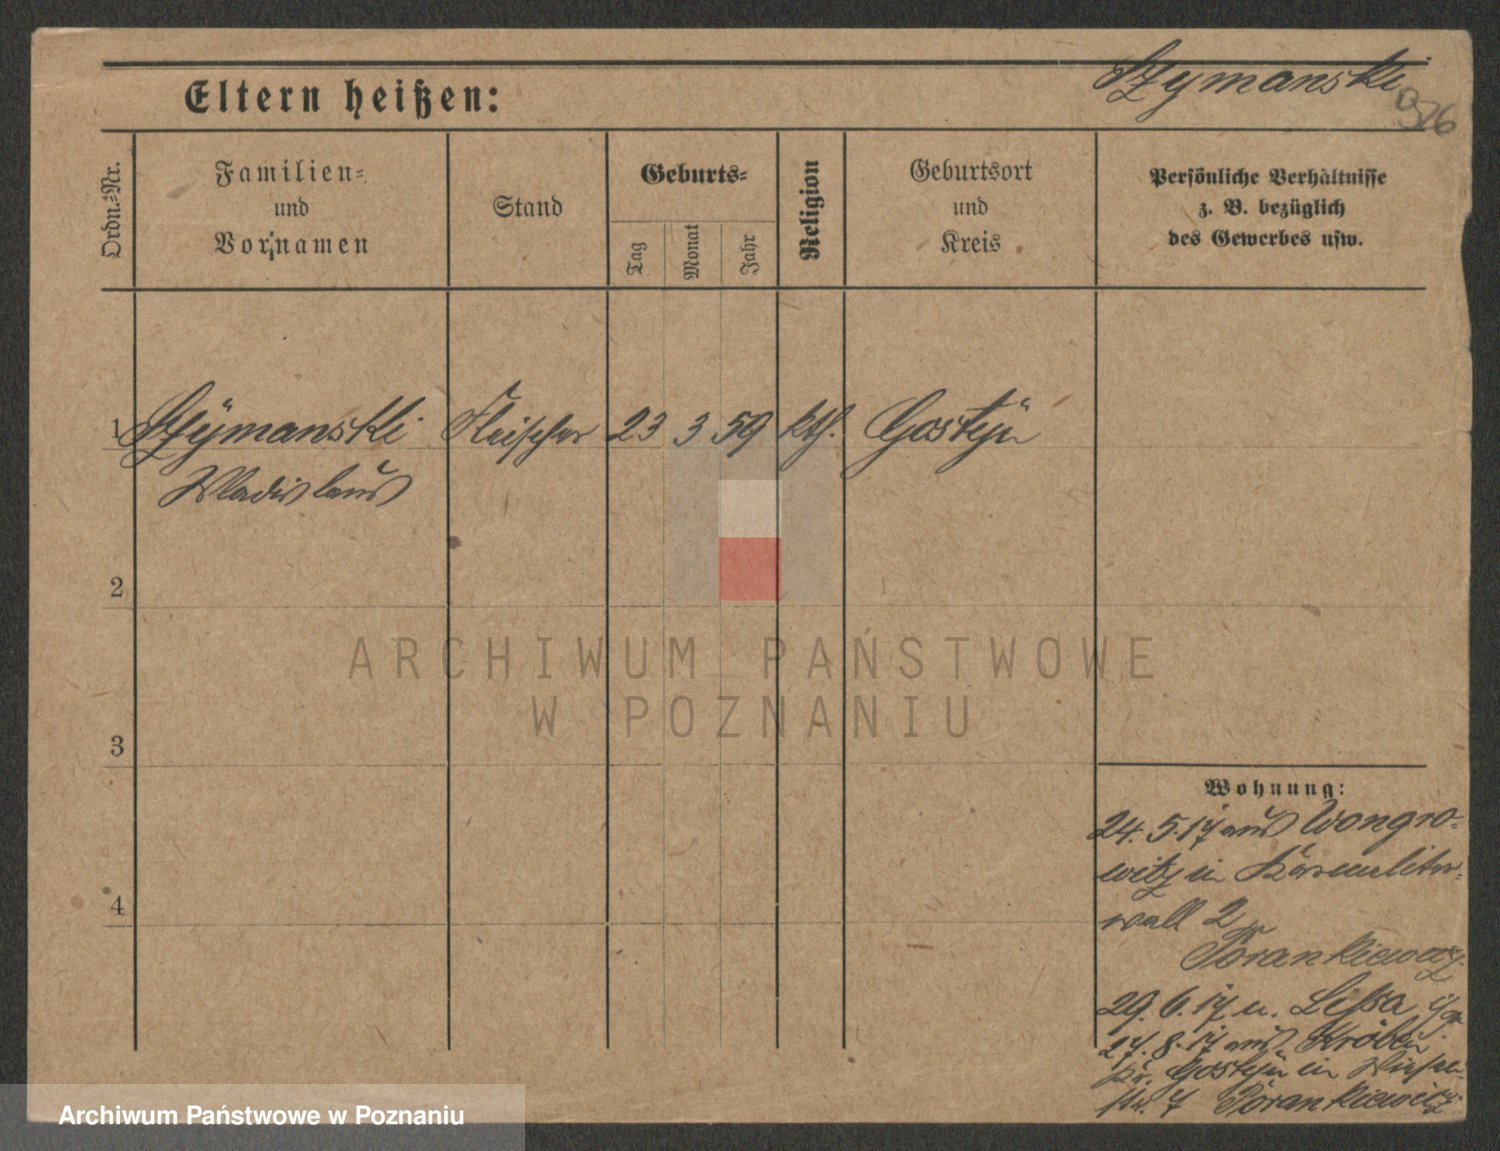 Szymanski
926
Eltern heißen:
Ordn.-Nr.
Familien-
und
Vornamen
Stand
Geburts-
Tag
Monat
Jahr
Religion
Geburtsort
und
Kreis
Persönliche Verhältnisse
z. B. bezüglich
des Gewerbes usw.
1 Szymanski Fleischer 23 3 59 kth. Gostyn
Wladislaus
2
3
4
ARCHIWUM PAŃSTWOWE
W POZNANIU
Wohnung:
24. 5. 17 aus Wongro-
witz in Karmeliter-
wall 2
Porankiewicz
29. 6. 17 n. Lissa
27. 8. 17 aus Kröben
Kr. Gostyn in Wiesen-
str. 7 Porankiewicz
Archiwum Państwowe w Poznaniu